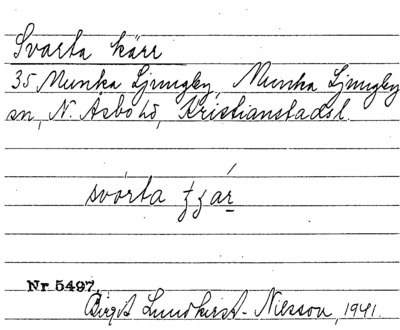 Svarta kärr
35 Munka Ljungby, Munka Ljungby
sn, N. Åsbo hd, Kristianstads l.
svarta
Nr 5497.
Birgit Lundkvist-Nilsson, 1941.